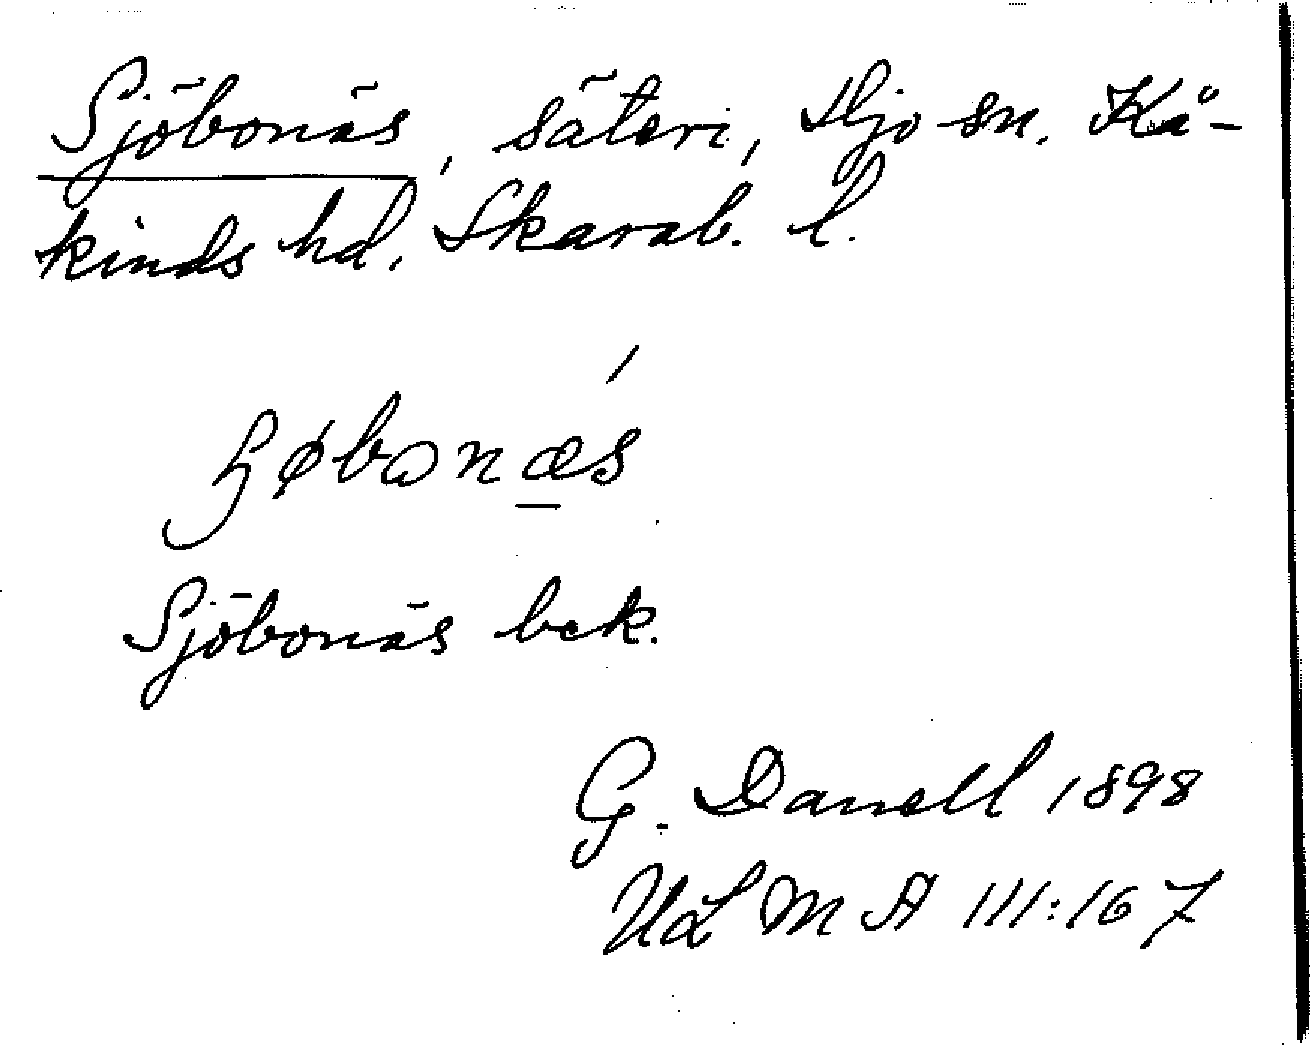 Sjöbonäs, säteri, Hjo sn. Kå-
kinds hd. Skarab. l.
Sjöbonäs bek.
G. Danell 1898
ULMA 111:167